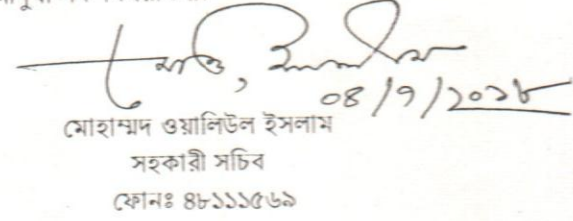 ০৪/৭/২০১৮
মোহাম্মদ ওয়ালিউল ইসলাম
সহকারী সচিব
ফোনঃ ৪৮১১১৫৬৯